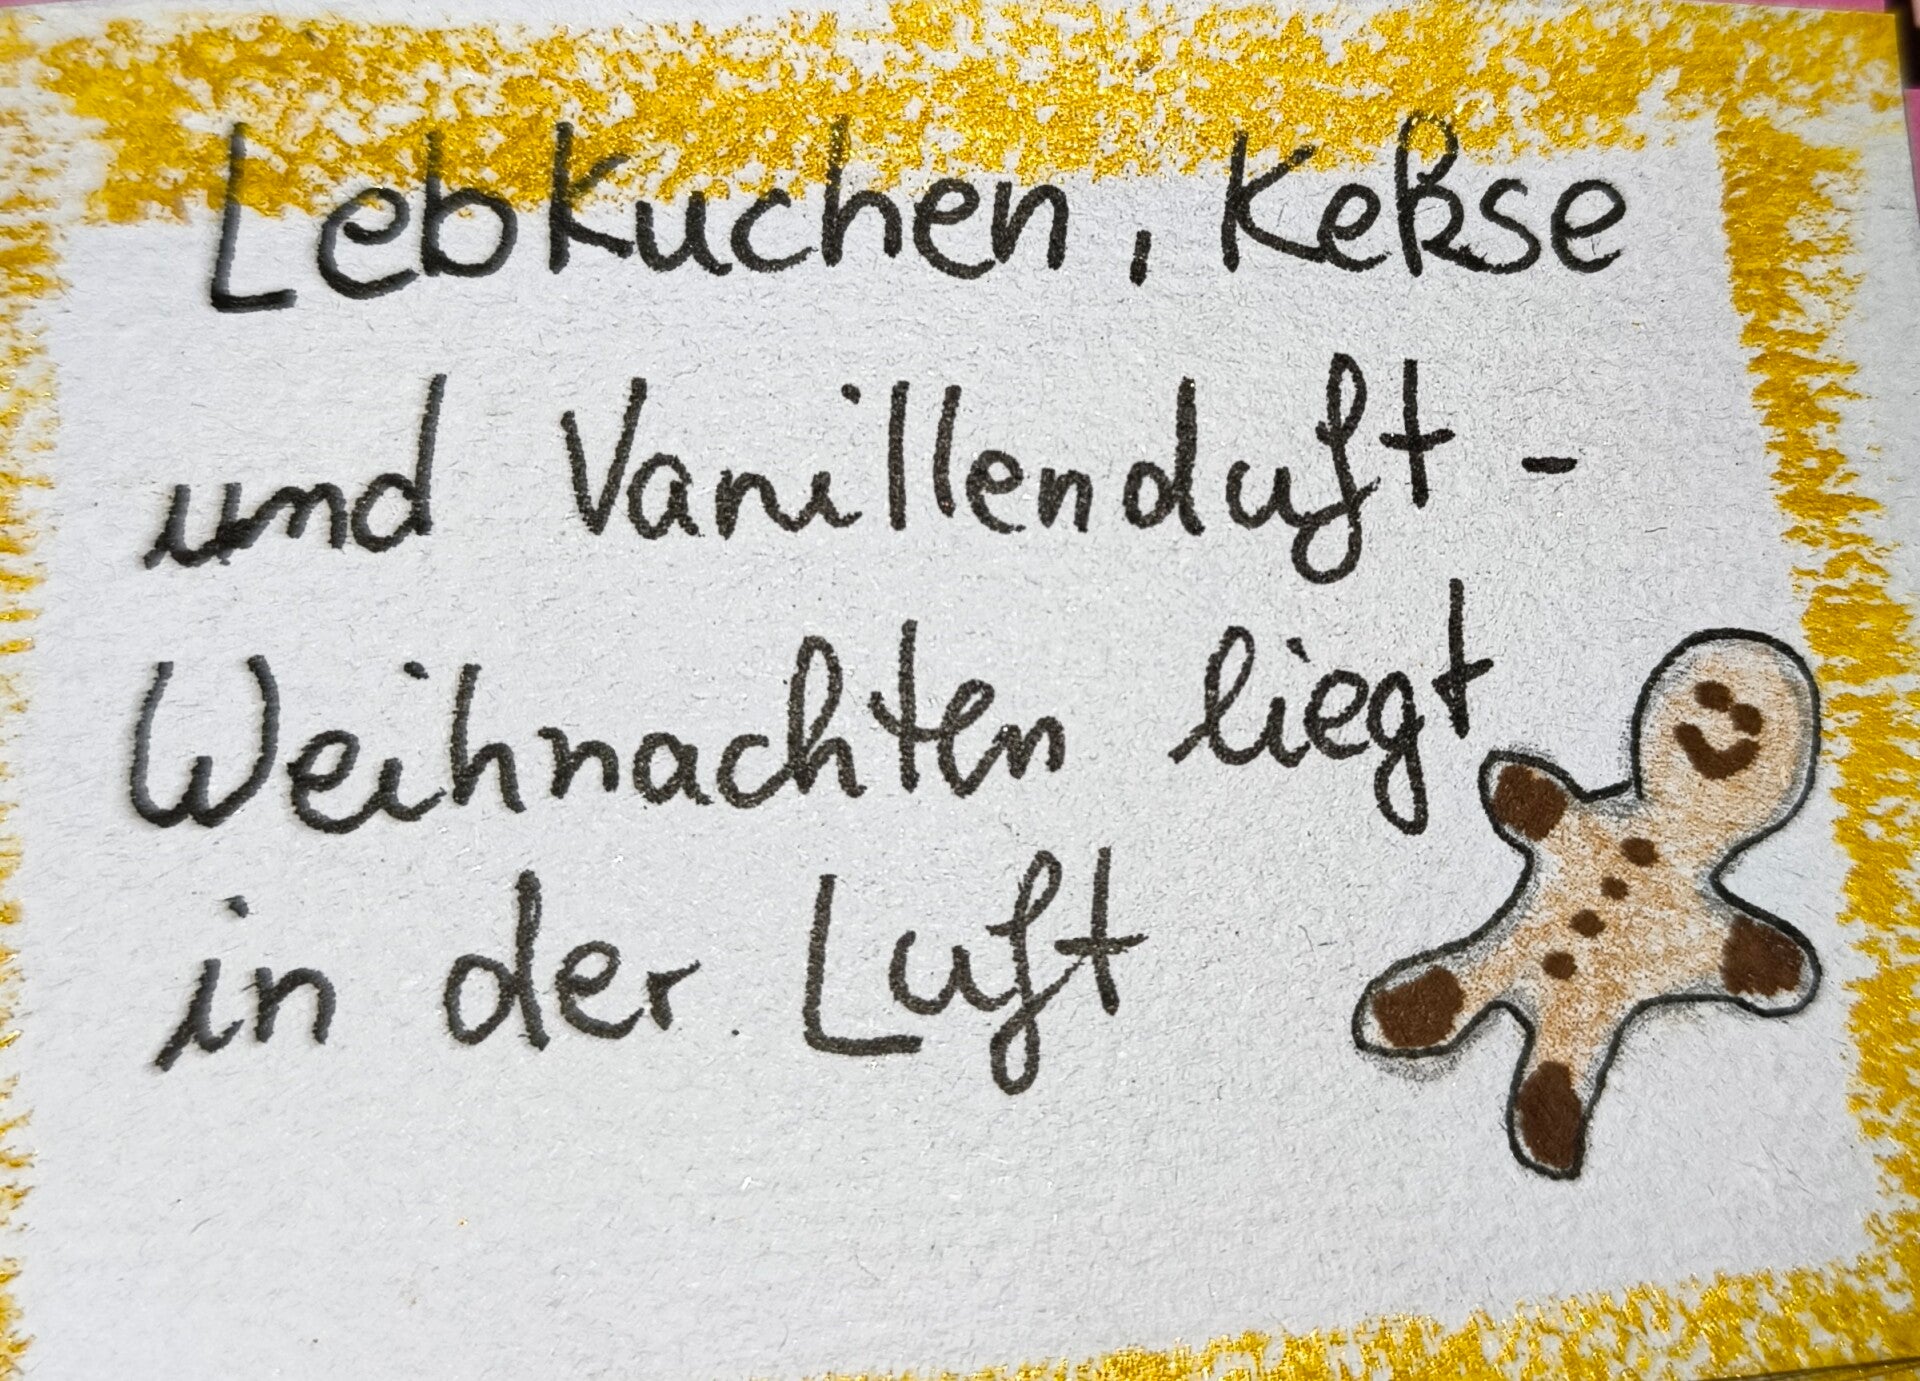 Lebkuchen, Kekse
und Vanillenduft -
Weihnachten liegt
in der Luft